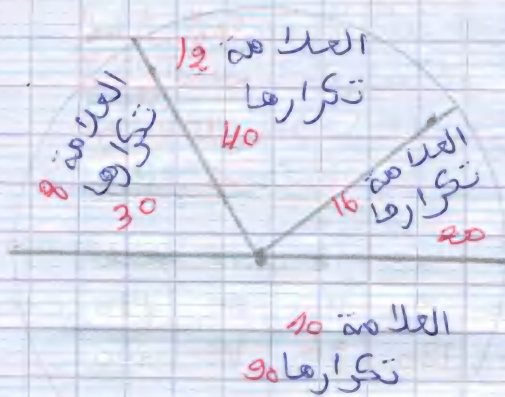 العلامة 12
تكرارها
40
العلامة
تكرارها
30
العلامة
16
تكرارها
20
العلامة 10
تكرارها 90